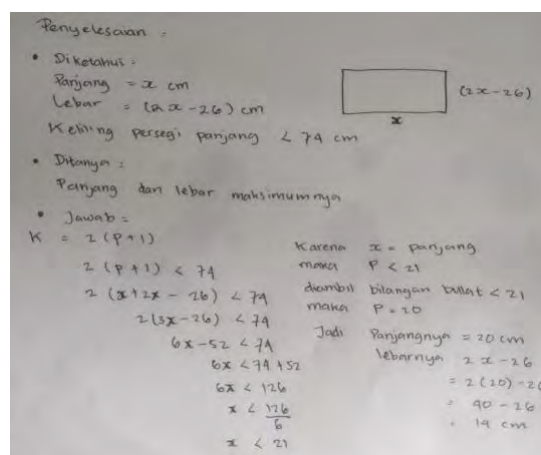 Penyelesaian :
• Diketahui :
Panjang = x cm
Lebar = (2x - 26) cm
Keliling persegi panjang < 74 cm
(2x - 26)
x
• Ditanya :
Panjang dan lebar maksimumnya
• Jawab =
K = 2 (P + l)
2 (P + l) < 74
2 (x + 2x - 26) < 74
2 (3x - 26) < 74
6x - 52 < 74
6x < 74 + 52
6x < 126
x < 126/6
x < 21
Karena x = panjang
maka P < 21
diambil bilangan bulat < 21
maka P = 20
Jadi Panjangnya = 20 cm
lebarnya 2x - 26
= 2 (20) - 26
= 40 - 26
= 14 cm